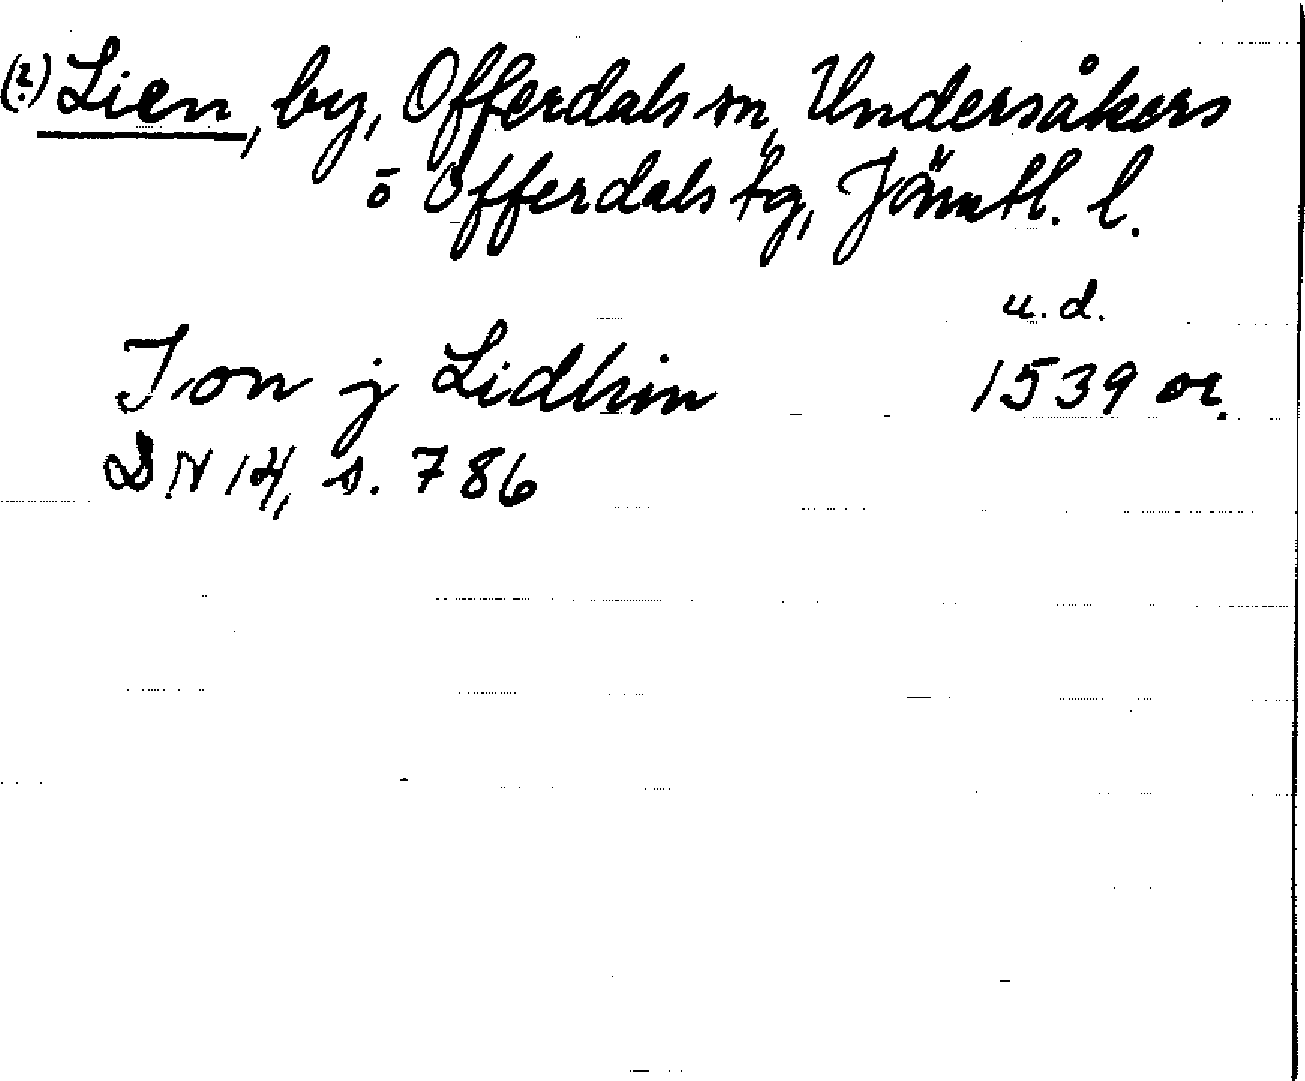 (?) Lien, by, Offerdals sn, Undersåkers
o Offerdals tg, Jämtl. l.
u. d.
Jon j Lidhin 1539 or.
DN 14, s. 786